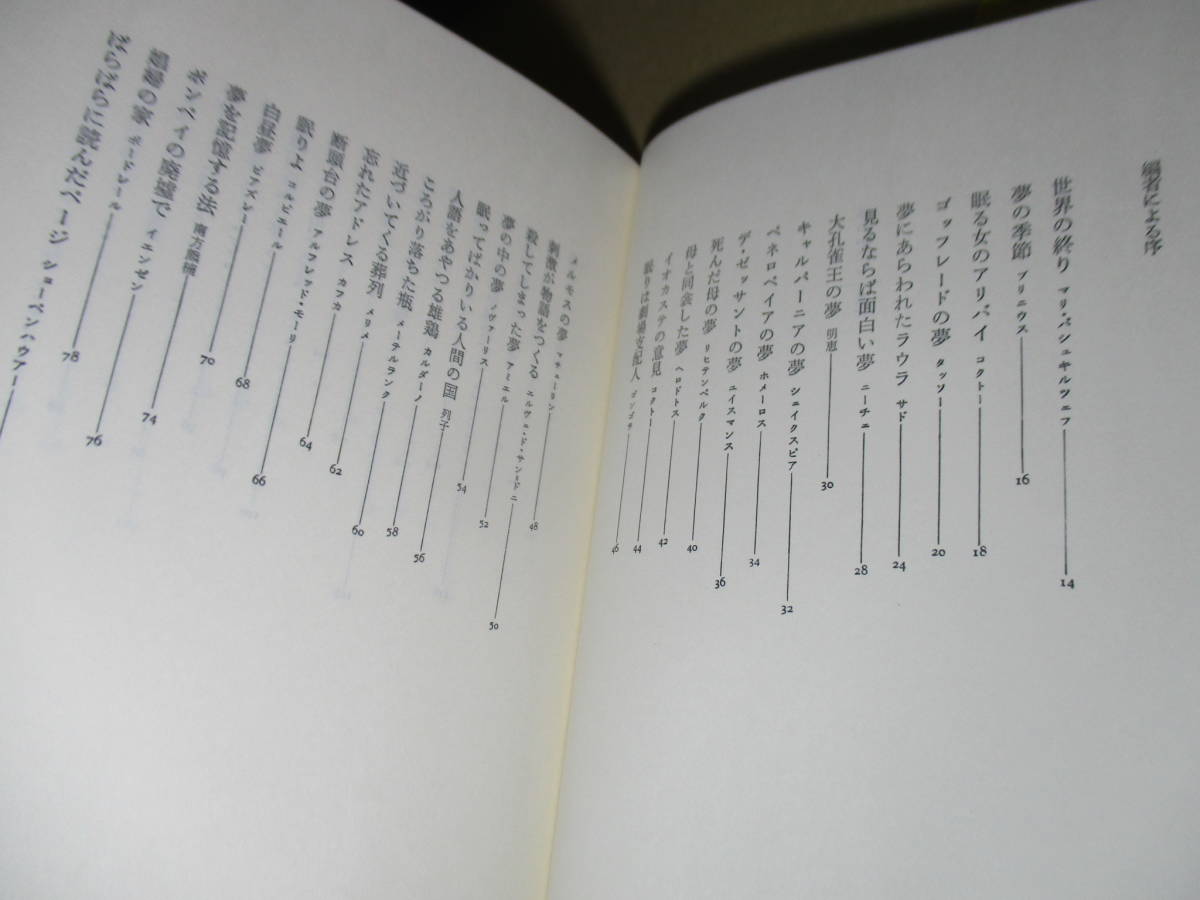 編者による序
世界の終り マリ・バシュキルツェフ 14
夢の季節 プリニウス 16
眠る女のアリバイ コクトー 18
ゴッフレードの夢 タッソー 20
夢にあらわれたラウラ サド 24
見るならば面白い夢 ニーチェ 28
大孔雀王の夢 明恵 30
キャルパーニアの夢 シェイクスピア 32
ペネロペイアの夢 ホメーロス 34
デ・ゼッサントの夢 ユイスマンス 36
死んだ母の夢 リヒテンベルク 40
母と同衾した夢 ヘロドトス 42
イオカステの意見 コクトー 44
眠りは劇場支配人 ゴンゴラ 46
メルモスの夢 マチューリン 48
刺激が物語をつくる エルヴェ・ド・サン=ドニ 50
殺してしまった夢 アミエル 52
夢の中の夢 ノヴァーリス
眠ってばかりいる人間の国 列子 54
人語をあやつる雄鶏 カルダーノ 56
ころがり落ちた瓶 メーテルランク 58
近づいてくる葬列 メリメ 60
忘れたアドレス カフカ 62
断頭台の夢 アルフレッド・モーリ 64
眠りよ コルビエール 66
白昼夢 ビアズレー 68
夢を記憶する法 南方熊楠 70
ポンペイの廃墟で イエンゼン 74
の家 ボードレール 76
ばらばらに読んだページ ショーペンハウアー 78